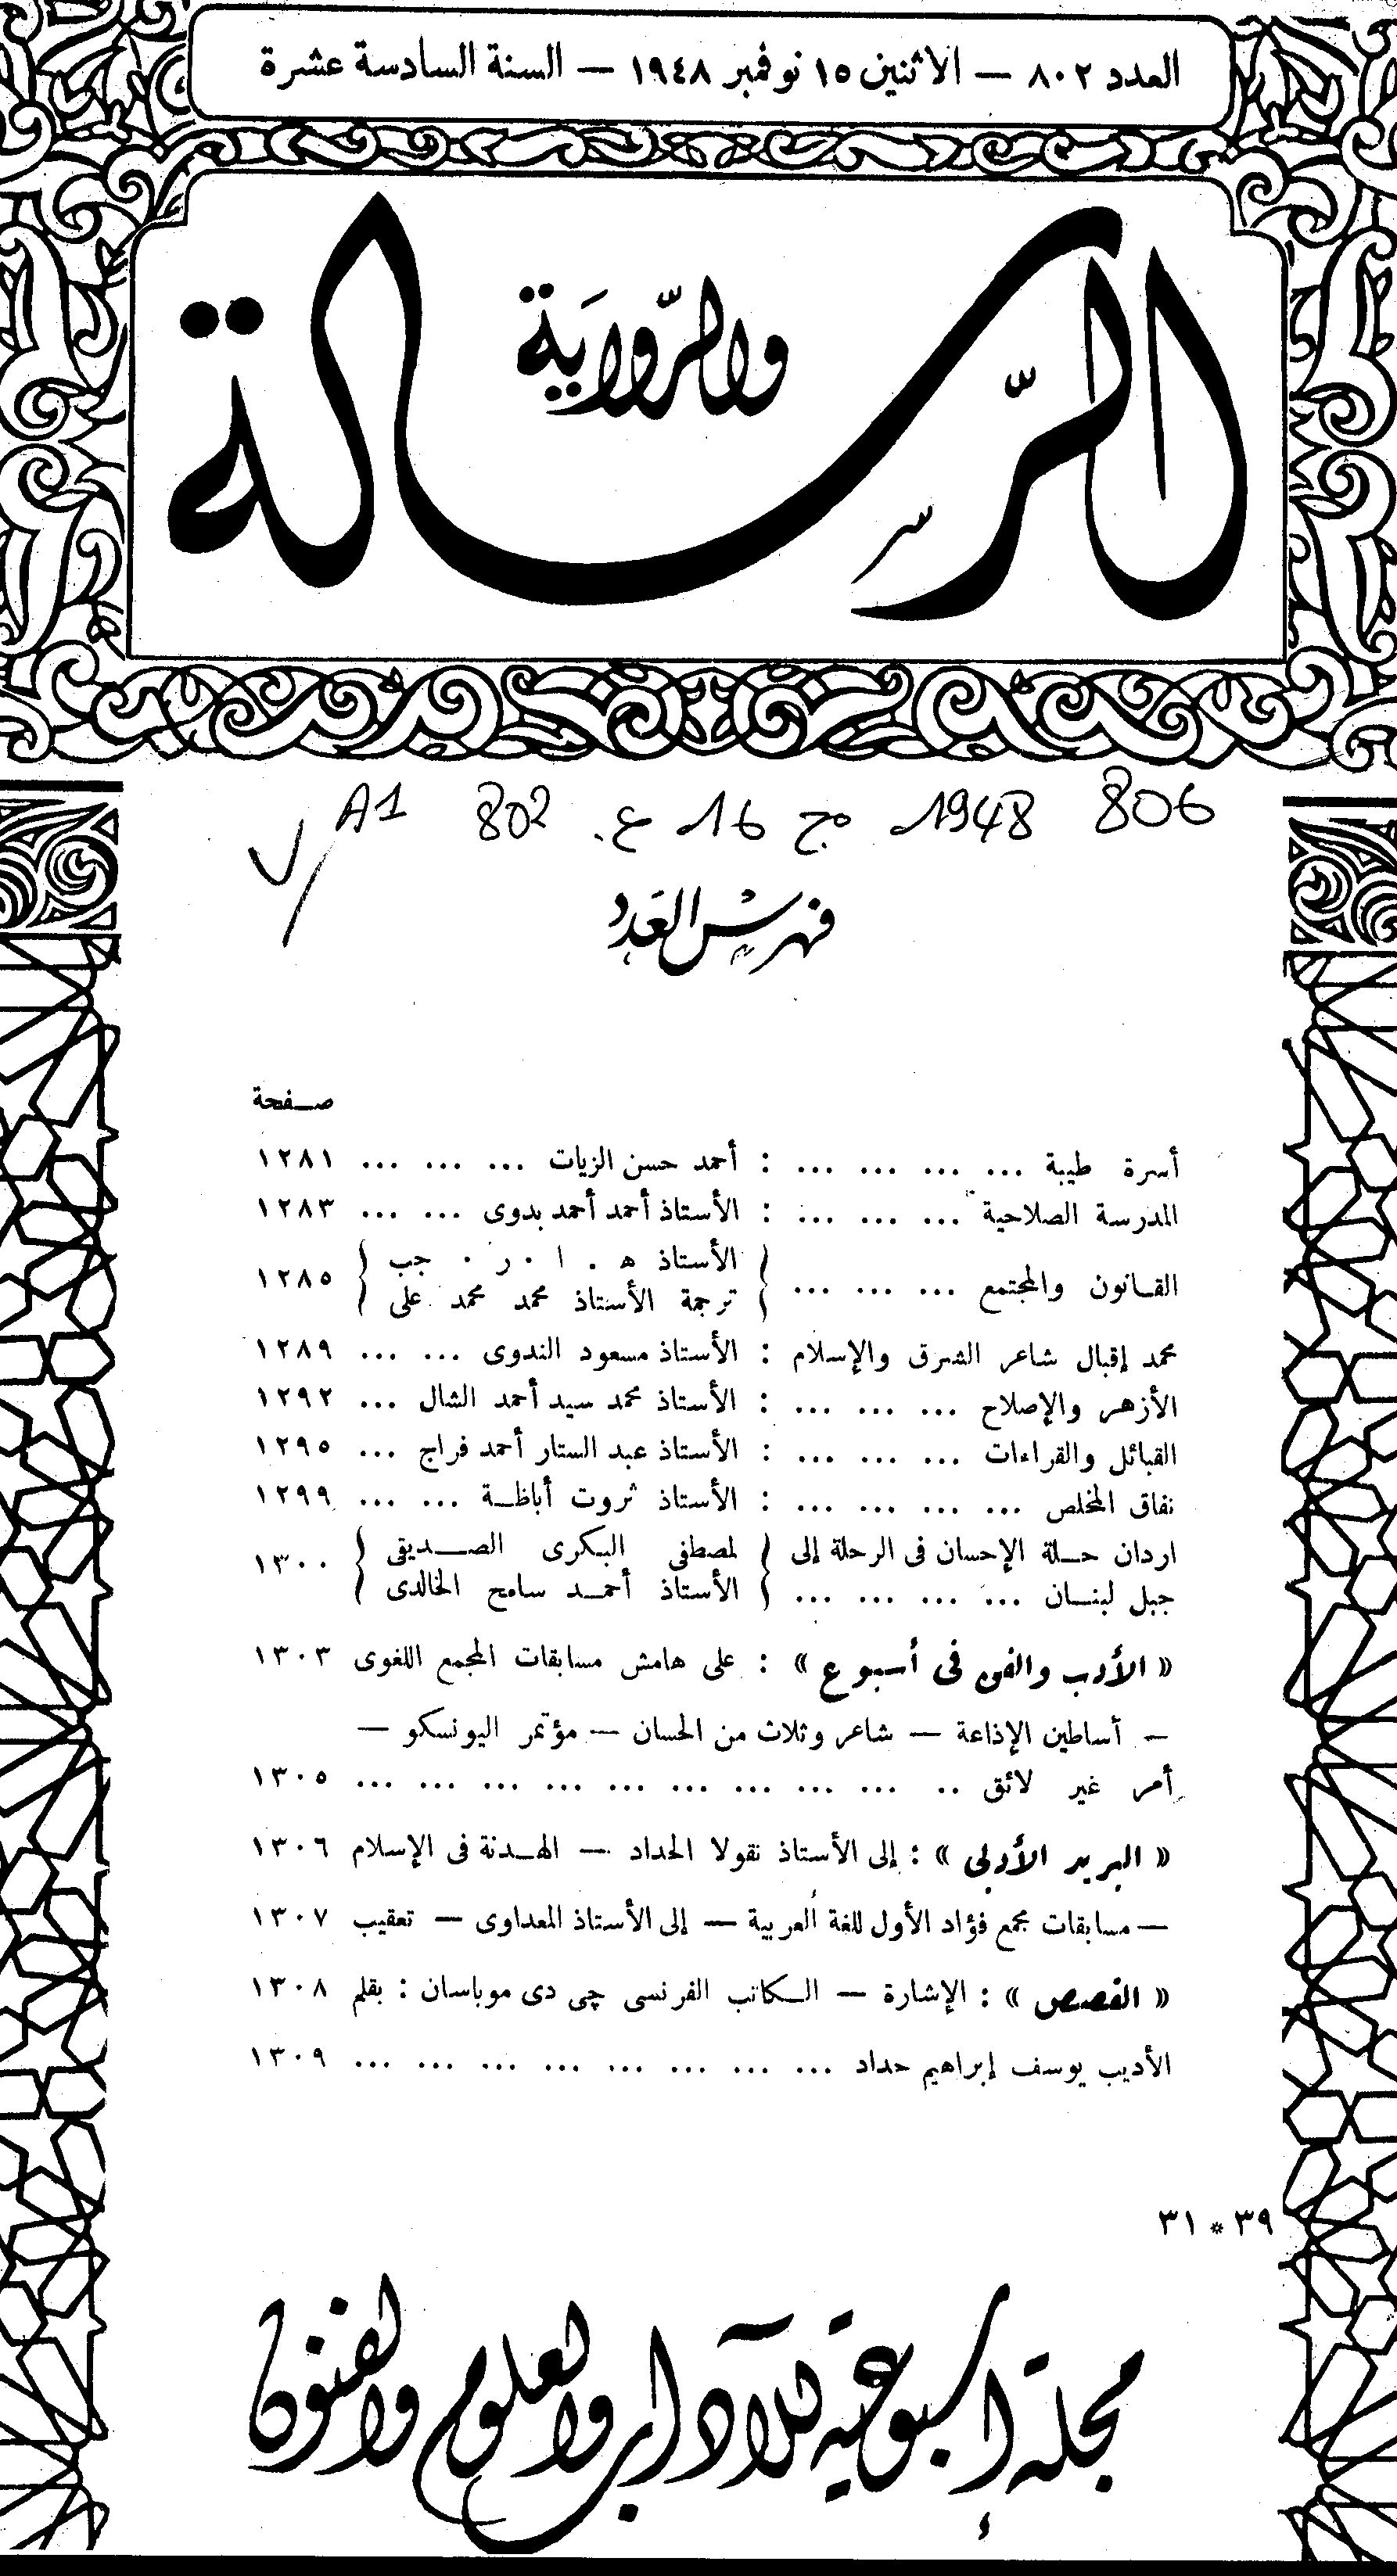 العدد ٨٠٢ — الاثنين ١٥ نوفمبر ١٩٤٨ — السنة السادسة عشرة
الرّسالة
والرّوَاية
806 1948 مج 16 ع. 802 A1
فهرس العَدد
صـفحة
أسرة طيبة ... ... ... ... : أحمد حسن الزيات ... ... ... ١٢٨١
المدرسة الصلاحية ... ... ... : الأستاذ أحمد أحمد بدوى ... ... ١٢٨٣
القـانون والمجتمع ... ... ... { الأستاذ ه . ا . ر . جب
ترجمة الأستاذ محمد محمد على } ١٢٨٥
محمد إقبال شاعر الشرق والإسلام : الأستاذ مسعود الندوى ... ... ١٢٨٩
الأزهر والإصلاح ... ... ... : الأستاذ محمد سيد أحمد الشال ... ١٢٩٢
القبائل والقراءات ... ... ... : الأستاذ عبد الستار أحمد فراج ... ١٢٩٥
نفاق المخلص ... ... ... ... : الأستاذ ثروت أباظـة ... ... ١٢٩٩
اردان حـلة الإحسان فى الرحلة إلى { لمصطفى البكرى الصـديقى
جبل لبنـان ... ... ... ... الأستاذ أحمـد سامح الخالدى } ١٣٠٠
« الأدب والفن فى أسبوع » : على هامش مسابقات المجمع اللغوى ١٣٠٣
— أساطين الإذاعة — شاعر وثلاث من الحسان — مؤتمر اليونسكو —
أمر غير لائق .. ... ... ... ... ... ... ... ... ... ١٣٠٥
« البريد الأدبى » : إلى الأستاذ نقولا الحداد — الهـدنة فى الإسلام ١٣٠٦
— مسابقات مجمع فؤاد الأول للغة العربية — إلى الأستاذ المعداوى — تعقيب ١٣٠٧
« القصص » : الإشارة — الـكاتب الفرنسى چى دى موباسان : بقلم ١٣٠٨
الأديب يوسف إبراهيم حداد ... ... ... ... ... ... ... ... ١٣٠٩
٣٩ * ٣١
مجلة إسبوعية للآداب والعلوم والفنون